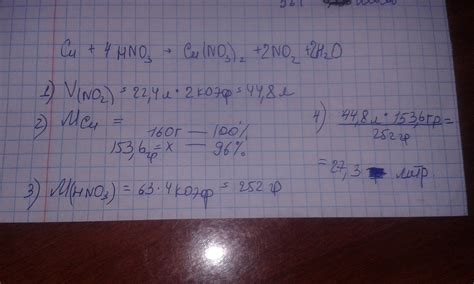 Cu + 4HNO₃ → Cu(NO₃)₂ + 2NO₂ + 2H₂O
1) V(NO₂) = 22,4л · 2коэф = 44,8л
2) MCu =
160г — 100%
153,6гр = x — 96%
3) M(HNO₃) = 63·4коэф = 252гр
4) 44,8л · 153,6гр =
252гр
= 27,3 литр.